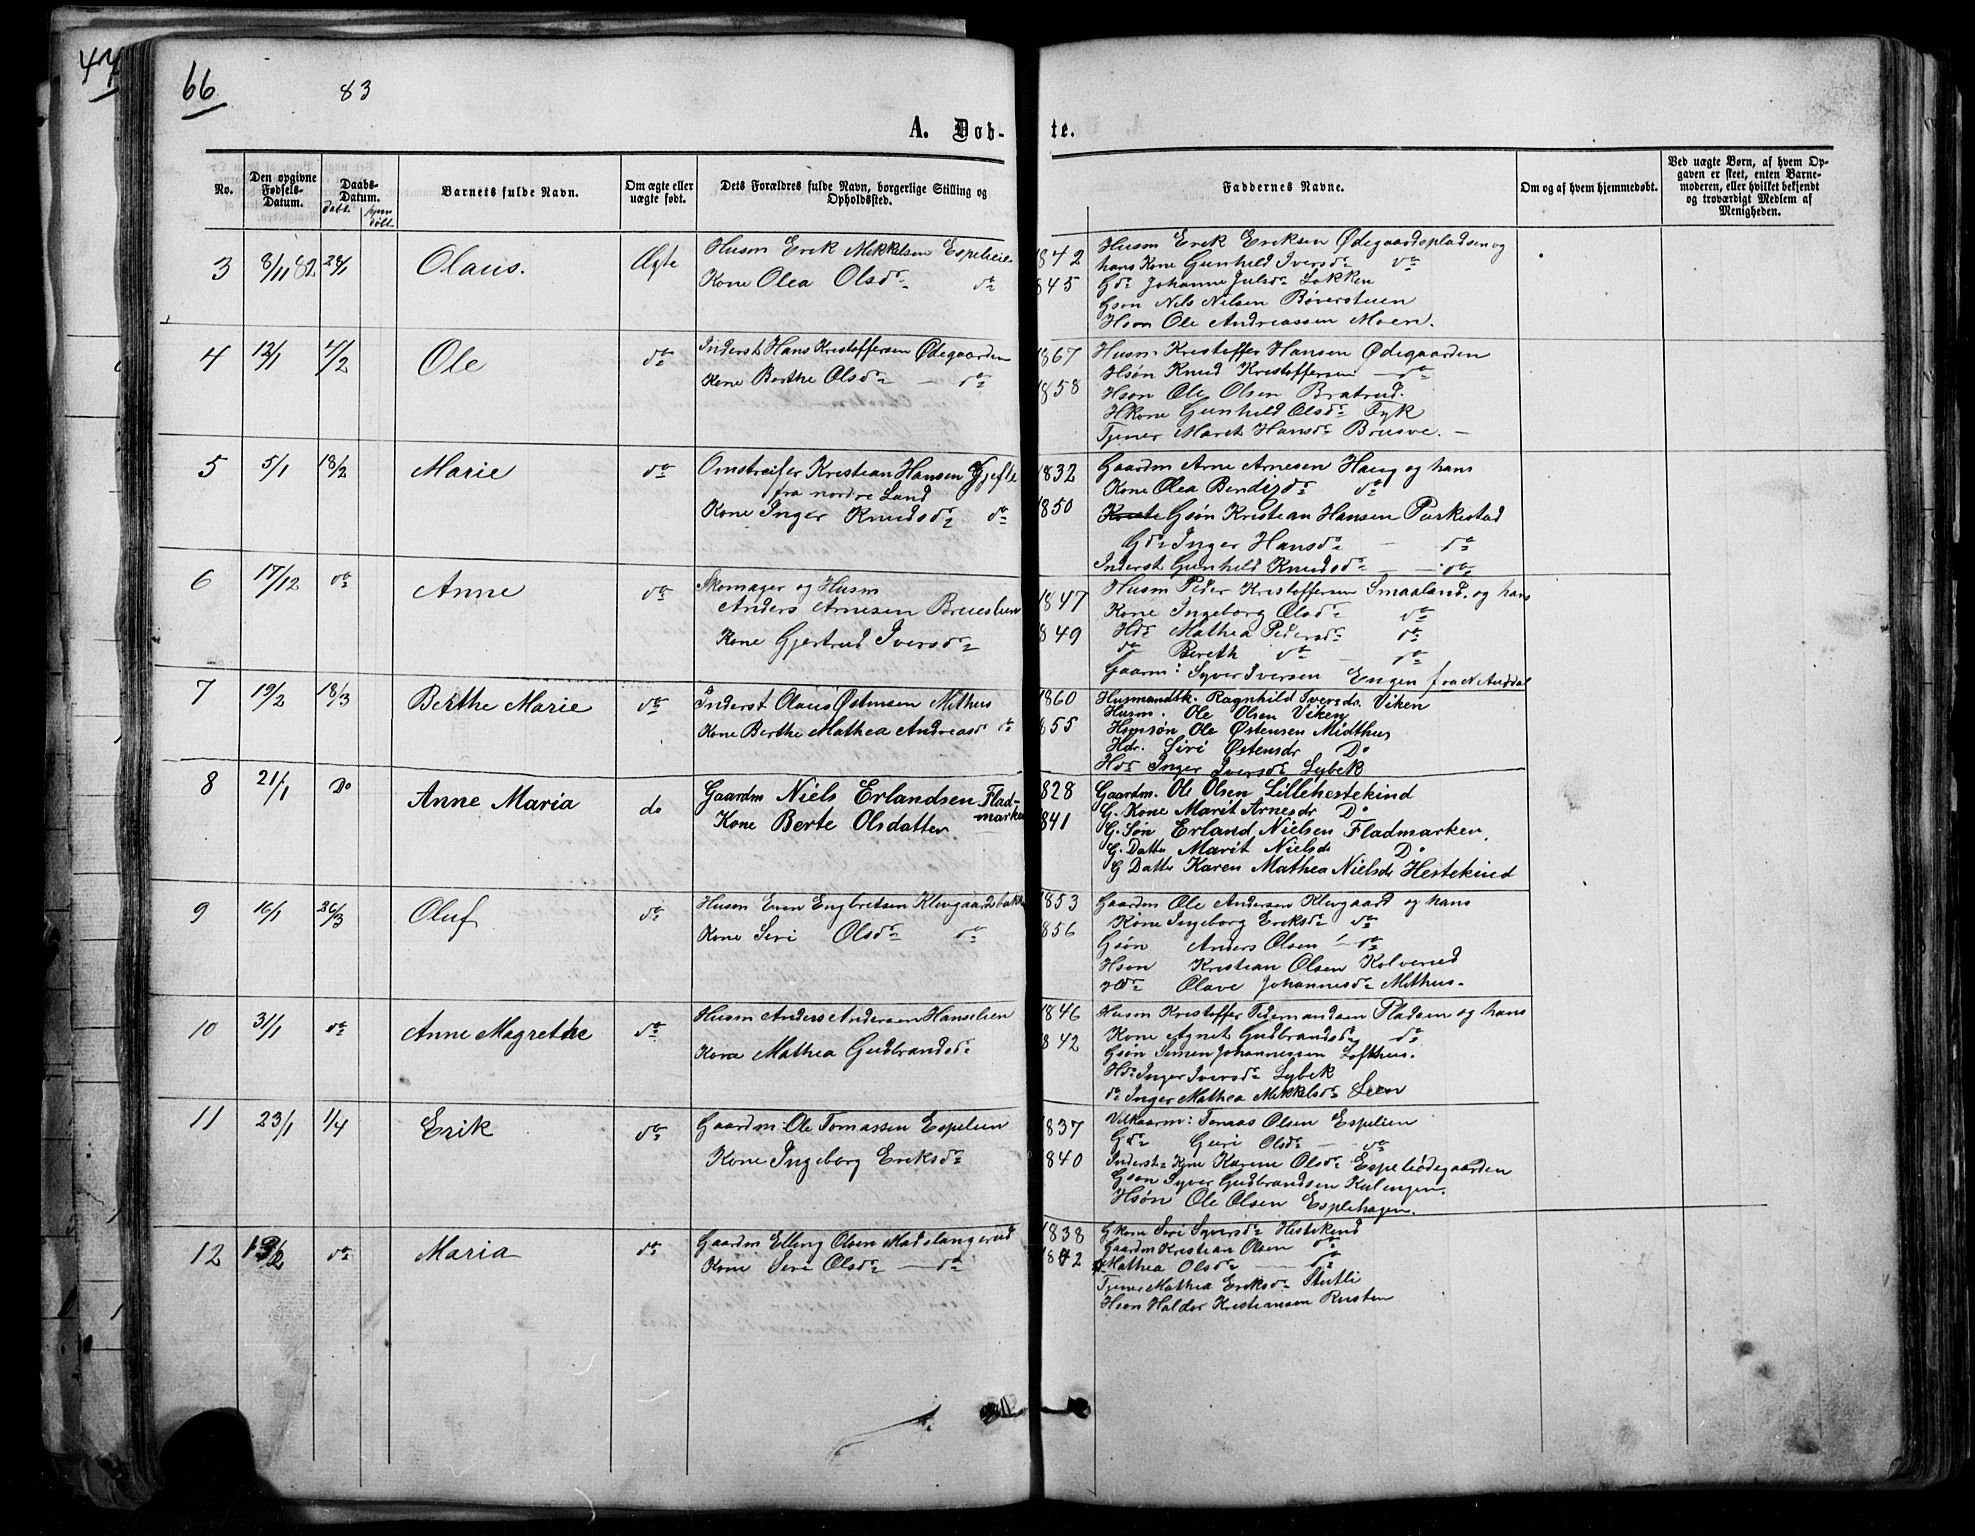 47
66
83
A. Døb-
te.
No.
Den opgivne Fødsels-Datum.
Daabs-Datum.
døbt. hjem døbt
Barnets fulde Navn.
Om ægte eller uægte født.
Dets Forældres fulde Navn, borgerlige Stilling og Opholdssted.
Faddernes Navne.
Om og af hvem hjemmedøbt.
Ved uægte Børn, af hvem Opgaven er skeet, enten Barnemoderen, eller hvilket bekjendt og troværdigt Medlem af Menigheden.
3 8/11 82 28/1 Olaus. Ægte
Husm Erik Mikkelsen Espelien
Kone Olea Olsdr do
1842
1845
Husm Erik Eriksen Ødegaardspladsen og
hans Kone Gunhild Iversdr do
Gdr Johanne Julsdr Løkken
Gsøn Nils Nilsen Bøverstuen
Hsøn Ole Andreassen Moen.
4 12/1 4/2 Ole do
Inderst Hans Kristoffersen Ødegaarden
Kone Berthe Olsdr — do
1867
1858
Husm Kristoffer Hansen Ødegaarden
Hsøn Knud Kristoffersen — do
Hsøn Ole Olsen Bratrud.
HKone Gunhild Olsdr Fyk
Tjener Marit Hansdr Brusve. —
5 5/1 18/2 Marie do
Omstreifer Kristian Hansen Gjefle
fra nordre Land
Kone Inger Knudsdr do
1832
1850
Gaardm Arne Arnesen Haug og hans
Kone Olea Bendixdr do
Gsøn Kristian Hansen Parkestad
Gdr Inger Hansdr — do
Inderst Gunhild Knudsdr — do
6 17/12 do Anne do
Skomager og Husm
Anders Arnesen Brueslien
Kone Gjertrud Iversdr
1847
1849
Husm Peder Kristoffersen Smaaland. og hans
Kone Ingeborg Olsdr do
Hdr Mathea Pedersdr do
do Bereth do — do
Gaarm: Syver Iversen Engen fra N Aurdal
7 19/2 18/3 Berthe Marie do
Inderst Olaus Østensen Mithus
Kone Berthe Mathea Andreasdr do
1860
1855
Husmandsk. Ragnhild Iversdr. Viken
Husm. Ole Olsen Viken
Hsmsøn Ole Østensen Midthus
Hdr. Siri Østensdr Do
Hdr Inger Iversdr Lybek
8 21/1 Do Anne Maria do
Gaardm Niels Erlandsen Flad-
marken
Kone Berte Olsdatter
1828
1841
Gaardm. Ole Olsen Lillehestekind
G. Kone Marit Arnesdr Do
G. Søn Erland Nielsen Fladmarken,
G. Datter Marit Nielsdr Do
G Datter Karen Mathea Nielsdr Hestekind
9 16/1 26/3 Oluf do
Husm Even Engbretsen Klevgaardsbakken
Kone Siri Olsdr do
1853
1856
Gaardm Ole Andersen Klevgaard og hans
Kone Ingeborg Eriksdr do
Gsøn Anders Olsen — do
Hsøn Kristian Olsen Kolverud
Hdr Olave Johannesdr Mithus.
10 31/1 do Anne Magrethe do
Husm Anders Andersen Hanselien
Kone Mathea Gudbrandsdr
1846
1842
Husm Kristoffer Pedermandsen Pladsen og hans
Kone Agnet Gudbrandsdr do
Gsøn Simen Johannessen Lofthus.
Hdr Inger Iversdr Lybek
do Inger Mathea Mikkelsdr Lien
11 23/1 1/4 Erik do
Gaardm: Ole Tomassen Espelien
Kone Ingeborg Eriksdr
1837
1840
Velkaarm: Tomas Olsen Espelien
Gdr Guri Olsdr — do
Inderst Kone Karine Olsdr Espeliødegaarden
Gsøn Syver Gudbrandsen Kulengen.
Hsøn Ole Olsen Espehagen.
12 19/2 do Maria do
Gaardm Elling Olsen Madslangerud
Kone Siri Olsdr — do
1838
1842
Gkone Siri Syversdr Hestekind
Gaardm Kristian Olsen do
Mathea Olsdr — do
Tjener Mathea Eriksdr Slutli
Hsøn Haldor Kristiansen Rusten